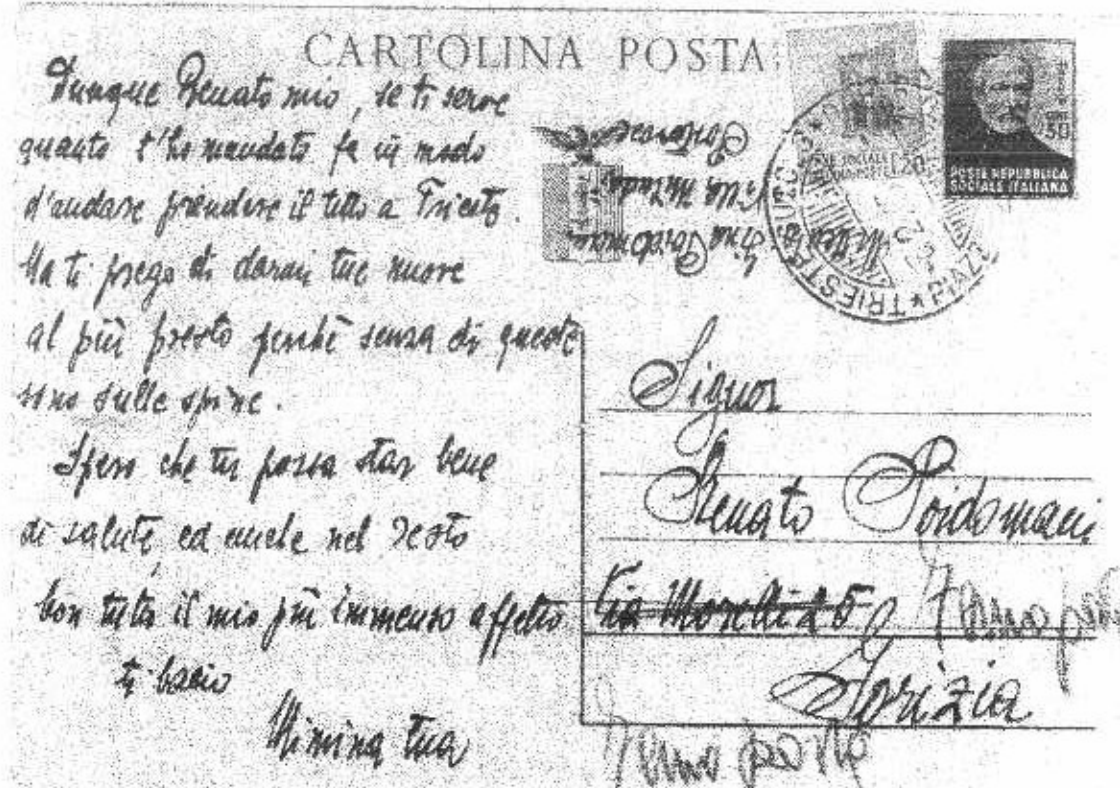 CARTOLINA POSTA
Dunque Renato mio, se ti serve
quanto t'ho mandato fa in modo
d'andare prendere il tutto a Trieste.
Ma ti prego di darmi tue nuove
al più presto perchè senza di queste
sono sulle spine.
Spero che tu possa star bene
di salute, ed anche nel resto
Con tutto il mio più immenso affetto
ti bacio
Mimina tua
Lina Poidomani
POSTE REPUBBLICA
SOCIALE ITALIANA
TRIESTE
Signor
Renato Poidomani
Via Morelli 25
Gorizia